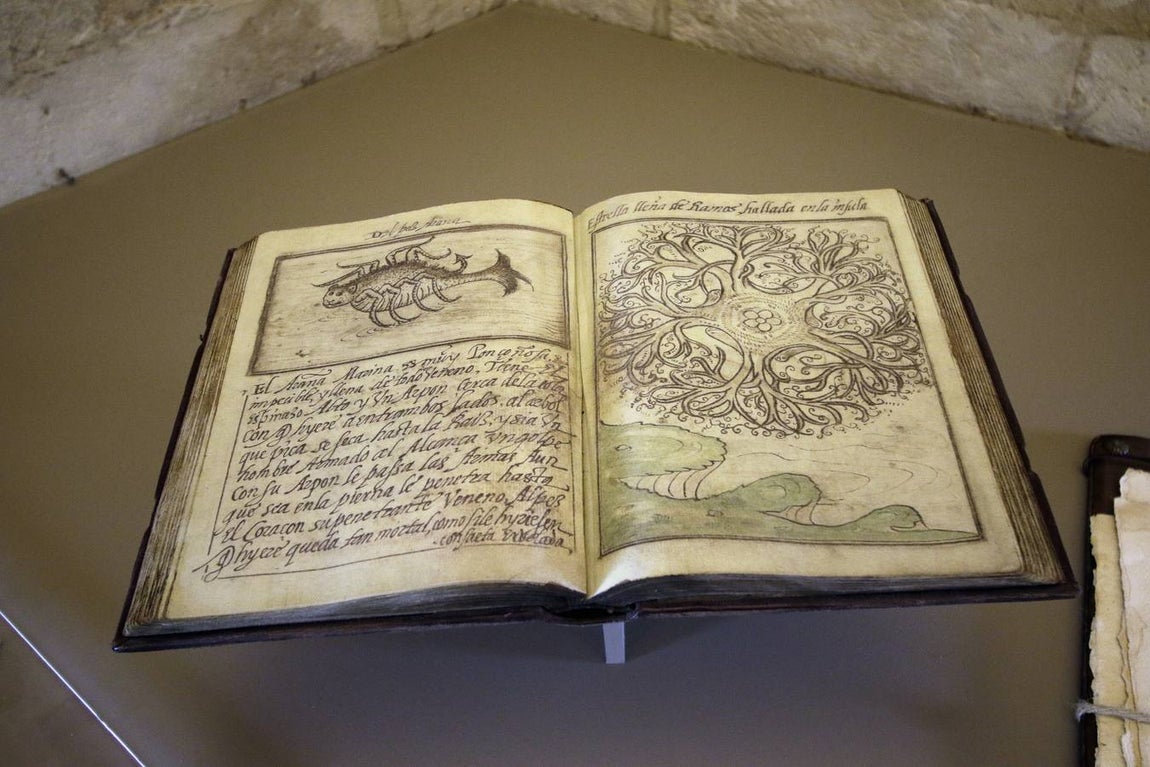 Del pez Araña
El Araña Marina es muy Ponçoñosa, e
impecible, y llena de todo veneno. Tiene
espinaso Alto y Un Arpon cerca de la cola
con q̃ hyere a entrambos lados. al arbol
que pica se seca hasta la Raiz. y si a Un
hombre Armado al Alcança un golpe
con su Arpon le passa las Armas Aun
que sea en la pierna le penetra hasta
el Coraçon su penetrante Veneno. Al pez
q̃ hyere queda tan mortal, como si le hyriesen
con saeta
Estrella lleña de Ramos hallada en la insula